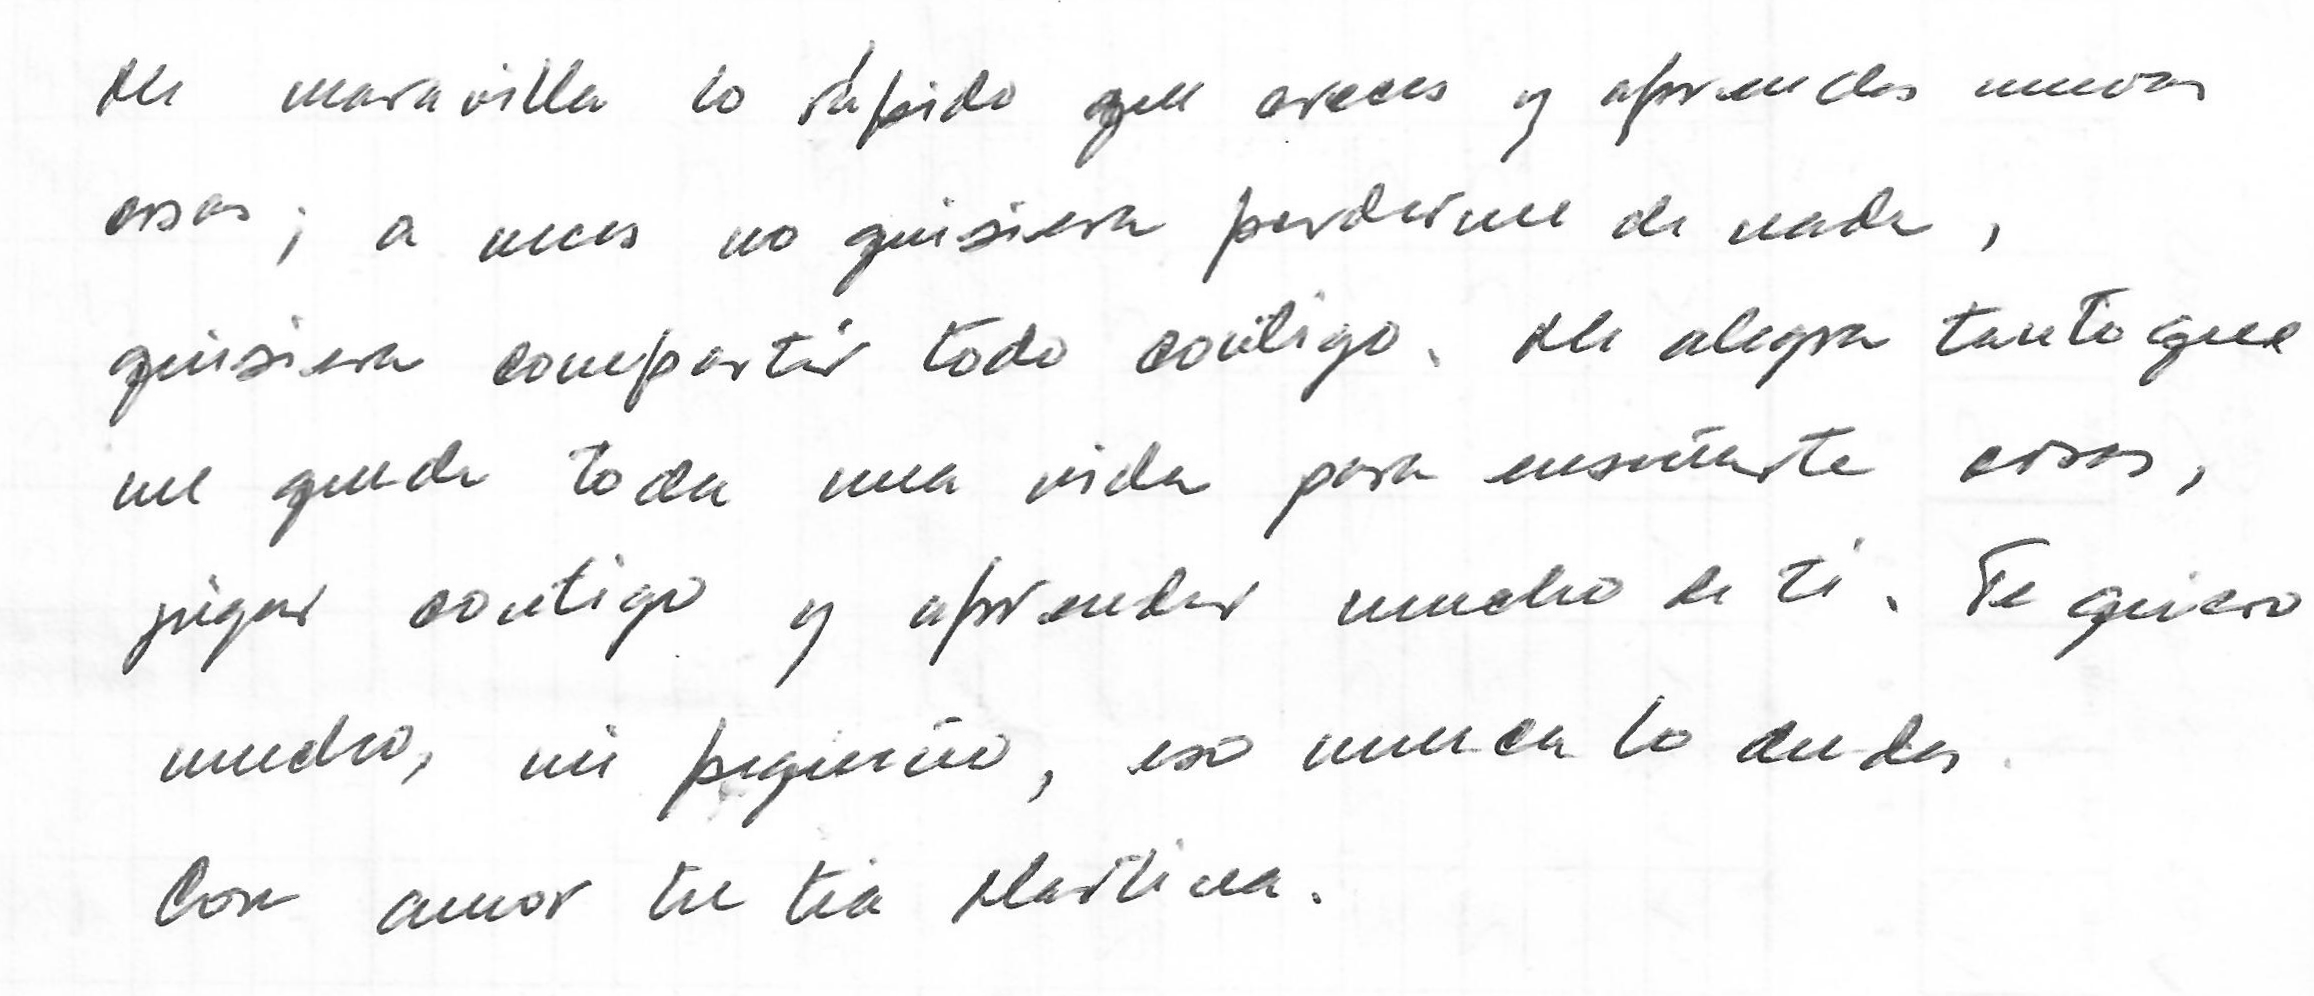 Me maravilla lo rápido que creces y aprendes nuevas
cosas; a veces no quisiera perderme de nada,
quisiera compartir todo contigo. Me alegra tanto que
me queda toda una vida para enseñarte cosas,
jugar contigo y aprender mucho de ti. Te quiero
mucho, mi pequeño, eso nunca lo dudes.
Con amor tu tía Martina.